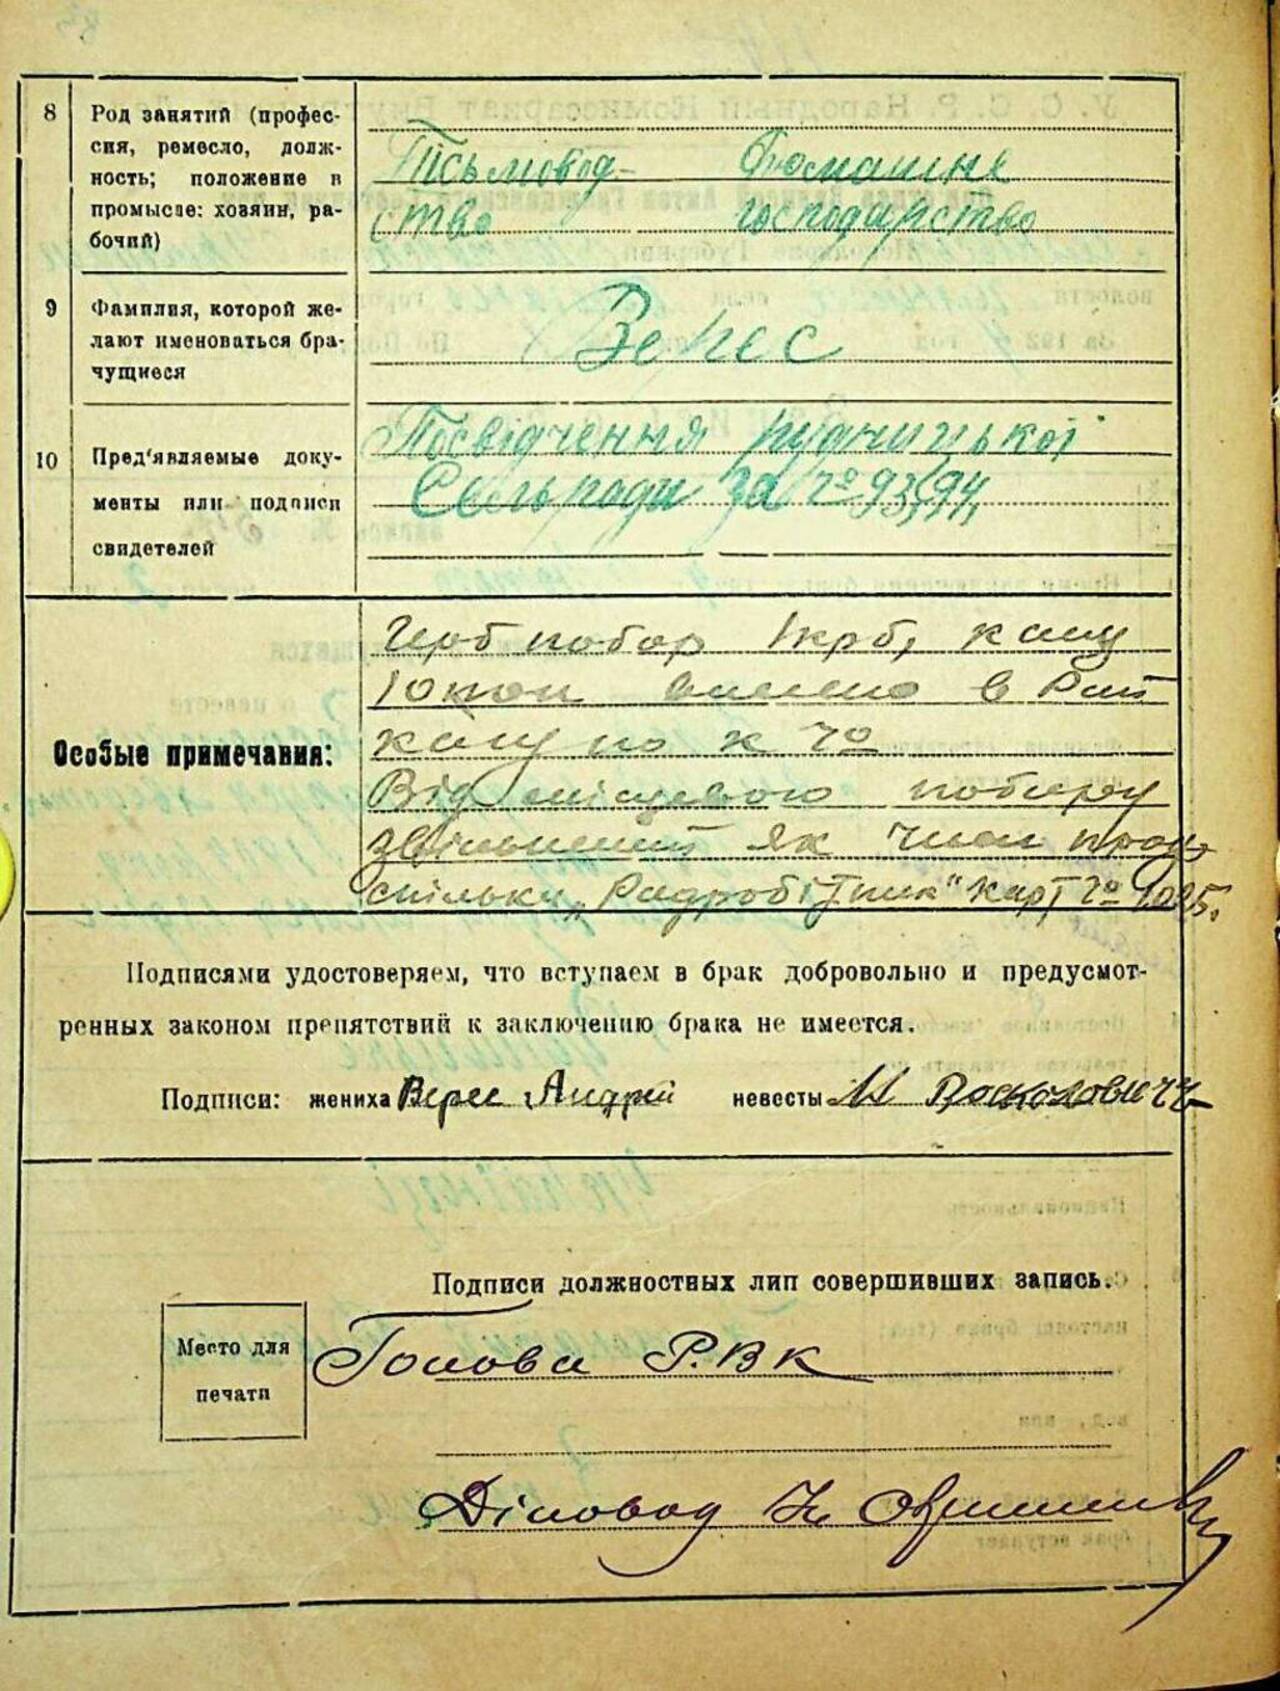 8 Род занятий (профес-
сия, ремесло, долж-
ность; положение в
промысле: хозяин, ра-
бочий)
Письмовод- Домашнє
ство господарство
9 Фамилия, которой же-
лают именоваться бра-
чущиеся
Верес
10 Пред'являемые доку-
менты или подписи
свидетелей
Посвідчення Рудчицької
Сельради за № 93, 94,
Особые примечания:
Герб побор 1 крб, касу
10 коп внесено в Рай
касу по к №
Від місцевого побору
звільнений як член проф
спілки „Радробітник" карт № 1025.
Подписями удостоверяем, что вступаем в брак добровольно и предусмот-
ренных законом препятствий к заключению брака не имеется.
Подписи: жениха Верес Андрій невесты М Росколович
Подписи должностных лип совершивших запись.
Место для
печати
Голова Р.В К
Діловод